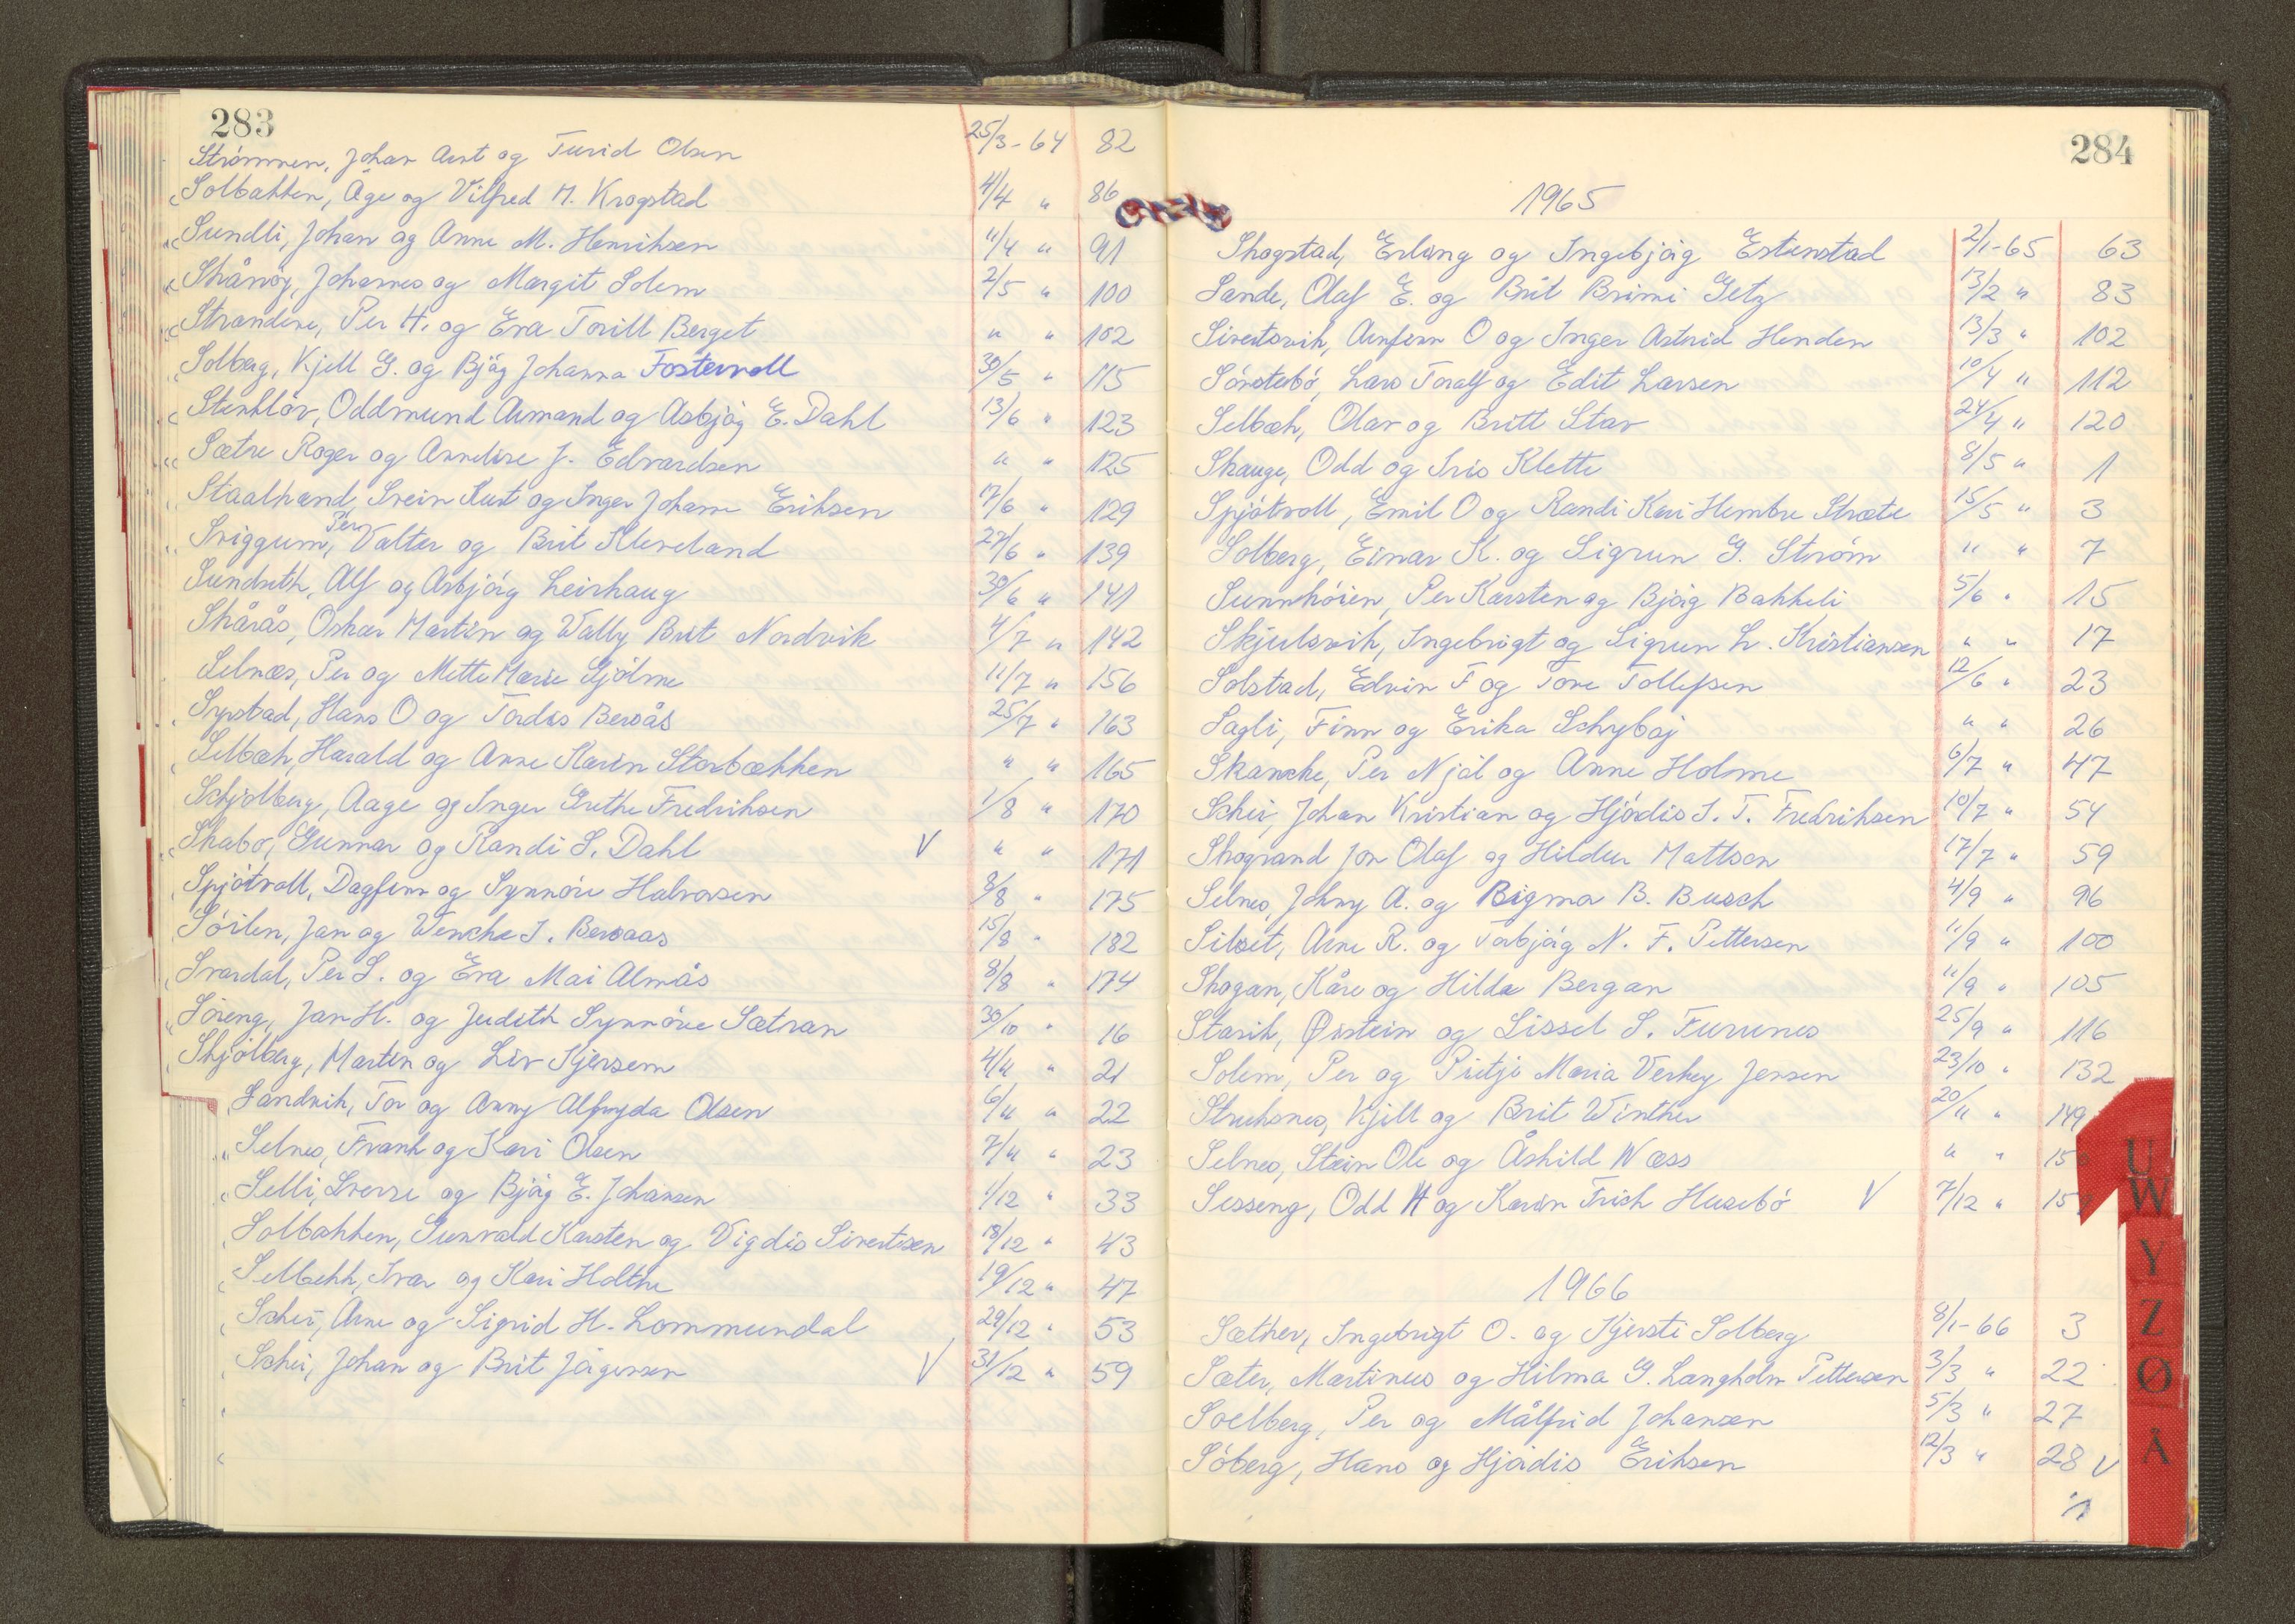 283
Strømmen, Johan Arnt og Turid Olsen 25/3-64 82
Solbakken, Åge og Vilfred M. Krogstad 4/4 " 86
Sundli, Johan og Anne M. Henriksen 11/4 " 91
Skånøy, Johannes og Margit Solem 2/5 " 100
Strandene, Per H. og Eva Torill Berget " " 102
Solberg, Kjell G. og Bjørg Johanna Fostervoll 30/5 " 115
Stenkløv, Oddmund Armand og Asbjørg E. Dahl 13/6 " 123
Sætre Roger og Annelise J. Edvardsen " " 125
Staalhand, Svein Kurt og Inger Johanne Eriksen 17/6 " 129
Sviggum, Per Valter og Brit Kleveland 27/6 " 139
Sundseth, Alf og Asbjørg Leirhaug 30/6 " 141
Skårås, Oskar Martin og Wally Brit Nordvik 4/7 " 142
Selnæs, Per og Mette Marie Gjølme 11/7 " 156
Syrstad, Hans O og Tordis Bersås 25/7 " 163
Selbæk, Harald og Anne Karin Storbækken " " 165
Schjølberg, Aage og Inger Grethe Fredriksen 1/8 " 170
Skabo, Gunnar og Randi S. Dahl V " " 171
Spjøtvoll, Dagfinn og Synnøve Halvorsen 8/8 " 175
Søilen, Jan og Wenche I. Bersaas 15/8 " 182
Svardal, Per S. og Eva Mai Almås 8/8 " 174
Søreng, Jan H. og Judith Synnøve Sætran 30/10 " 16
Skjølberg, Martin og Liv Kjersem 4/11 " 21
Sandvik, Tor og Anny Alfryda Olsen 6/11 " 22
Selnes, Frank og Kari Olsen 7/11 " 23
Selli, Sverre og Bjørg E. Johansen 1/12 " 33
Solbakken, Gunvald Karsten og Vigdis Sivertsen 18/12 " 43
Selbekk, Ivar og Kari Holthe 19/12 " 47
Schei, Arne og Sigrid H. Lommundal 29/12 " 53
Schei, Johan og Brit Jørgensen V 31/12 " 59
284
1965
Skogstad, Erling og Ingebjørg Estenstad 2/1-65 63
Sande, Olaf E. og Brit Brimi Getz 13/2 " 83
Sivertsvik, Arnfinn O og Inger Astrid Henden 13/3 " 102
Sørstebø, Lars Toralf og Edit Larsen 10/4 " 112
Selbæk, Olav og Britt Stav 24/4 " 120
Skauge, Odd og Iris Klette 8/5 " 1
Spjøtvoll, Emil O og Randi Kari Hembre Stræte 15/5 " 3
Solberg, Einar K. og Sigrun G. Strøm " " 7
Sunnhøien, Per Karsten og Bjørg Bakkeli 5/6 " 15
Skjulsvik, Ingebrigt og Sigrun L. Kristiansen " " 17
Solstad, Edvin F og Tove Tollefsen 12/6 " 23
Sagli, Finn og Erika Schybaj " " 26
Skancke, Per Njål og Anne Holme 6/7 " 47
Schei, Johan Kristian og Hjørdis S. T. Fredriksen 10/7 " 54
Skogrand Jon Olaf og Hildur Mattson 17/7 " 59
Selnes, Johny A. og Bigma B. Busch 4/9 " 96
Silset, Arne R. og Torbjørg N. F. Pettersen 11/9 " 100
Skogan, Kåre og Hilda Bergan 11/9 " 105
Stavik, Øistein og Sissel S. Furunes 25/9 " 116
Solem, Per og Pietje Maria Verhey Jensen 23/10 " 132
Struksnes, Kjell og Brit Winther 20/11 " 149
Selnes, Stein Ole og Åshild Næss " " 15
Sesseng, Odd H og Karin Frich Husebø V 7/12 " 15
1966
Sæther, Ingebrigt O. og Kjersti Solberg 8/1-66 3
Sæter, Martinus og Hilma G. Langholm Pettersen 3/3 " 22
Soelberg, Per og Målfrid Johansen 5/3 " 27
Søberg, Hans og Hjørdis Eriksen 12/3 " 28 V
U
W
Y
Z
Ø
Å